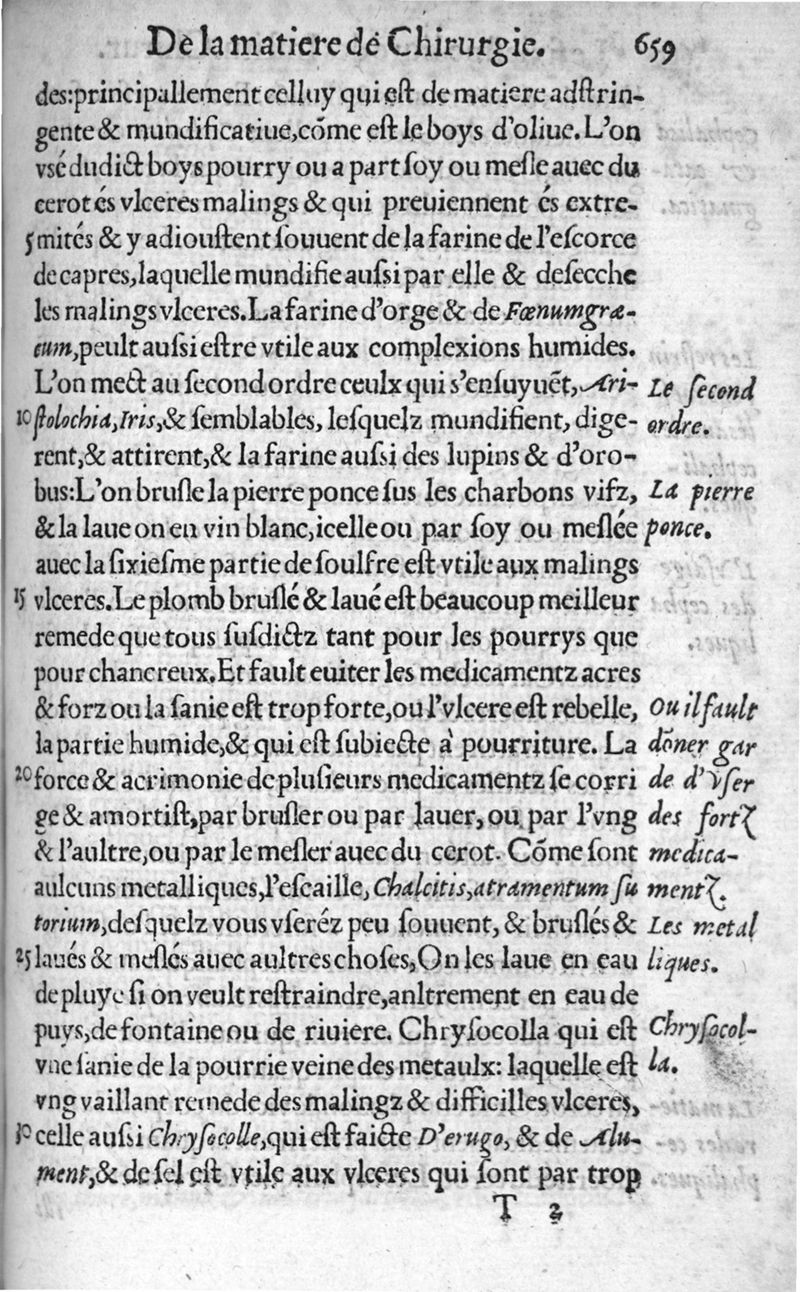 De la matiere dé Chirurgie. 659
des:principallement celluy qui eſt de matiere adſtrin-
gente & mundificatiue,cõme eſt le boys d'oliue.L'on
vsé dudict boys pourry ou a part ſoy ou meſle auec du
cerot és vlceres malings & qui preuiennent és extre-
5 mités & y adiouſtent ſouuent de la farine de l'eſcorce
de capres,laquelle mundifie auſsi par elle & deſecche
les malings vlceres.La farine d'orge & de Fœnumgræ-
cum,peult auſsi eſtre vtile aux complexions humides.
L'on mect au ſecond ordre ceulx qui s'enſuyuẽt, Ari- Le ſecond
10 ſtolochia,Iris,& ſemblables, leſquelz mundifient, dige- ordre.
rent,& attirent,& la farine auſsi des lupins & d'oro-
bus:L'on bruſle la pierre ponce ſus les charbons vifz, La pierre
& la laue on en vin blanc,icelle ou par ſoy ou meſlée ponce.
auec la ſixieſme partie de ſoulfre eſt vtile aux malings
15 vlceres.Le plomb bruſlé & laué eſt beaucoup meilleur
remede que tous ſuſdictz tant pour les pourrys que
pour chancreux.Et fault euiter les medicamentz acres
& forz ou la ſanie eſt trop forte,ou l'vlcere eſt rebelle, Ou il fault
la partie humide,& qui eſt ſubiecte à pourriture. La dõner gar
20 force & acrimonie de pluſieurs medicamentz ſe corri de d'vſer
ge & amortiſt,par bruſler ou par lauer, ou par l'vng des fortz
& l'aultre,ou par le meſler auec du cerot. Cõme ſont medica-
aulcuns metalliques,l'eſcaille, Chalcitis,atramentum ſu mentz.
torium,deſquelz vous vſeréz peu ſouuent, & bruſlés & Les metal
25 laués & meſlés auec aultres choſes,On les laue en eau liques.
de pluye ſi on veult reſtraindre,anltrement en eau de
puys,de fontaine ou de riuiere. Chryſocolla qui eſt Chryſocol-
vne ſanie de la pourrie veine des metaulx: laquelle eſt la.
vng vaillant remede des malingz & difficilles vlceres,
30 celle auſsi Chryſocolle,qui eſt faicte D'erugo, & de Alu-
ment,& de ſel eſt vtile aux vlceres qui ſont par trop
T 2